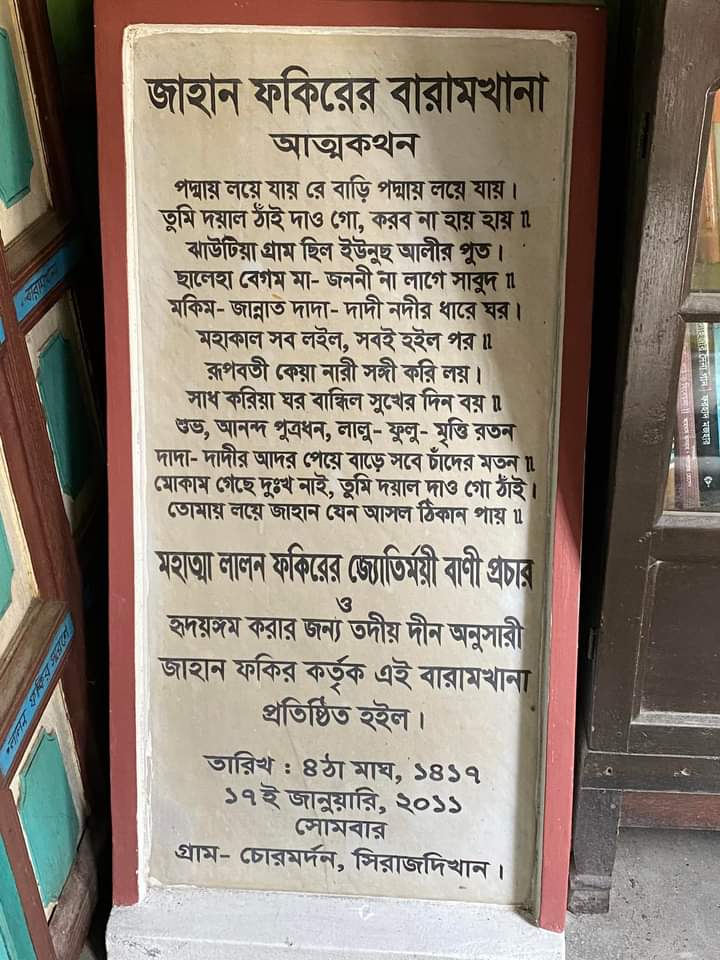 জাহান ফকিরের বারামখানা
আত্মকথন
পদ্মায় লয়ে যায় রে বাড়ি পদ্মায় লয়ে যায়।
তুমি দয়াল ঠাঁই দাও গো, করব না হায় হায়॥
ঝাউটিয়া গ্রাম ছিল ইউনুছ আলীর পুত।
ছালেহা বেগম মা- জননী না লাগে সাবুদ॥
মকিম- জান্নাত দাদা- দাদী নদীর ধারে ঘর।
মহাকাল সব লইল, সবই হইল পর॥
রূপবতী কেয়া নারী সঙ্গী করি লয়।
সাধ করিয়া ঘর বান্ধিল সুখের দিন বয়॥
শুভ, আনন্দ পুত্রধন, লালু- ফুলু- মৃত্তি রতন
দাদা- দাদীর আদর পেয়ে বাড়ে সবে চাঁদের মতন॥
মোকাম গেছে দুঃখ নাই, তুমি দয়াল দাও গো ঠাঁই।
তোমায় লয়ে জাহান যেন আসল ঠিকান পায়॥
মহাত্মা লালন ফকিরের জ্যোতির্ময়ী বাণী প্রচার
ও
হৃদয়ঙ্গম করার জন্য তদীয় দীন অনুসারী
জাহান ফকির কর্তৃক এই বারামখানা
প্রতিষ্ঠিত হইল।
তারিখ : ৪ঠা মাঘ, ১৪১৭
১৭ই জানুয়ারি, ২০১১
সোমবার
গ্রাম- চোরমর্দন, সিরাজদিখান।
বারামখানা